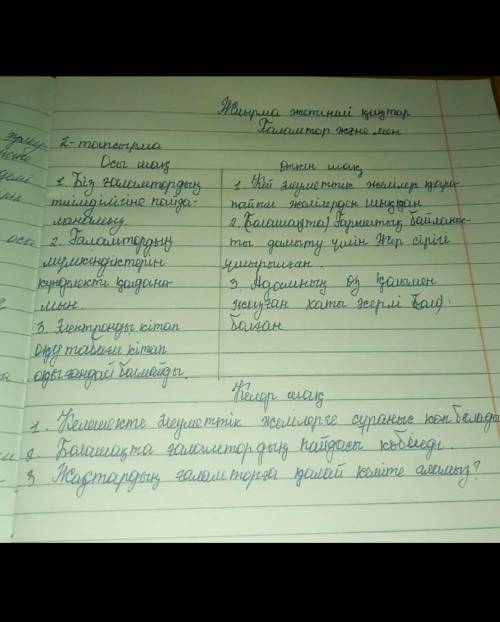 Жиырма жетінші қаңтар
Ғаламтор және мен
2-тапсырма
Осы шақ
1. Біз ғаламтордың
тиімділігіне пайда-
ланамыз.
2. Ғаламтордың
мүмкіндіктерін
күнделікті қолдана-
мын.
3. Электронды кітап
оқу табиғи кітап
оқығандай болмайды.
Өткен шақ
1. Көп әлеуметтік желілер қара-
пайым желілерден шыққан.
2. (Болашақта) Ғарыштық байланыс-
ты дамыту үшін Жер серігі
ұшырылған.
3. Адамның өз қолымен
жазған хаты жерлі
болған
Келер шақ
1. Келешекте әлеуметтік желілерге сұраныс көп болады
2. Болашақта ғаламтордың пайдасы көбейеді.
3. Жастардың ғаламторға қалай келіте аламыз?